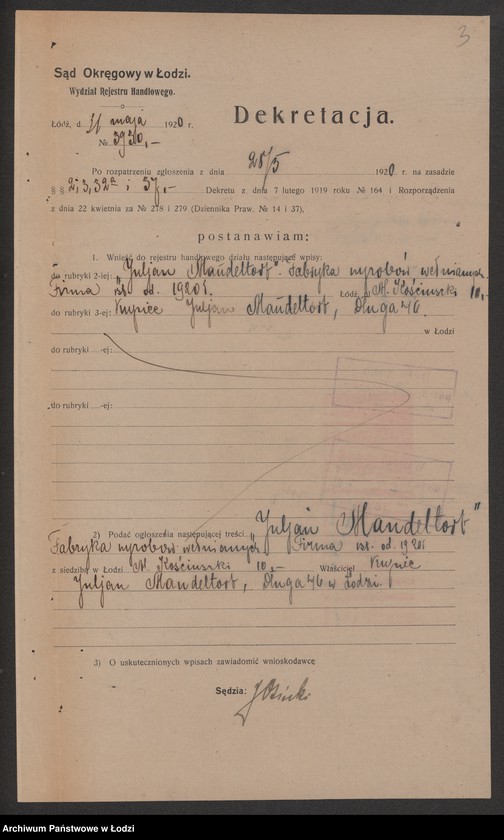 3
Sąd Okręgowy w Łodzi.
Wydział Rejestru Handlowego.
Łódź, d. 31 maja 1920 r.
№ 3930,-
Dekretacja.
Po rozpatrzeniu zgłoszenia z dnia 28/5 1920 r. na zasadzie
§ § 2, 3, 32ª i 37,- Dekretu z dnia 7 lutego 1919 roku № 164 i Rozporządzenia
z dnia 22 kwietnia za № 278 i 279 (Dziennika Praw. № 14 i 37),
postanawiam:
1. Wnieść do rejestru handlowego działu następujące wpisy:
do rubryki 2-iej: „Juljan Mandeltort". Fabryka wyrobów wełnianych.
Firma ist. od. 1920 r. Łódź, ul. N. Kościuszki 10,-
do rubryki 3-ej: Kupiec Juljan Mandeltort, Długa 46.
w Łodzi
do rubryki -ej:
do rubryki -ej:
2) Podać ogłoszenia następującej treści „Juljan Mandeltort"
Fabryka wyrobów wełnianych Firma ist. od. 1920 r
z siedzibą w Łodzi N. Kościuszki 10,- Właściciel Kupiec
Juljan Mandeltort, Długa 46 w Łodzi.
3) O uskutecznionych wpisach zawiadomić wnioskodawcę
Sędzia:
Archiwum Państwowe w Łodzi